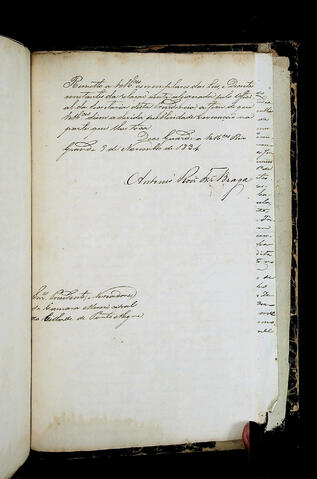 Remetto a VMces exemplares das Leis, e Decretos
constantes da relação junta assignada pelo Offici
al da Secretaria desta Presidencia a fim de que
VMces dem a devida publicidade e execução na
parte que lhes toca.
Deos Guarde a VMces Rio
Grande 5 de Novembro de 1834.
Antonio Roiz Fez Braga
Snrs Presidente, e Vereadores
da Camara Municipal
da Cidade de Porto Alegre